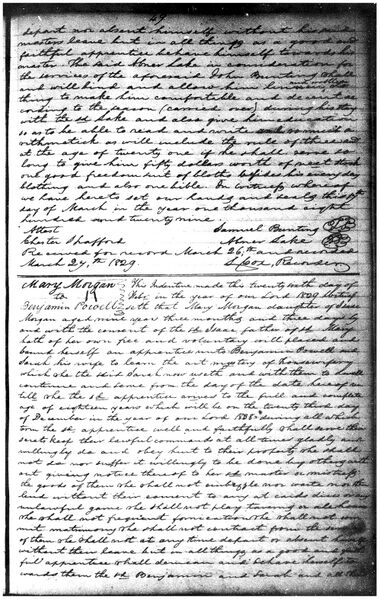 49
depart nor absent himself without his said
masters leave but in all things as a good and
faithful apprentice behave himself towards his
master. The said Abner Lake in consideration for
the services of the aforesaid John Bunting shall
and will find and allow him
thing to make him comfortable and decent as
conforms to the season during his stay
with the sd Lake and also give him education
so as to be able to read and write and so much
arithmatick as will calculate the rule of three and
at the age of twenty one if he shall serve so
long to give him fifty dollars worth of neat stock
one good freedom suit of cloths besides his every day
clothing and also one bible. In witness whereof
we have hereto set our hands and seals this
day of March in the year one thousand eight
hundred and twenty nine.
Attest Samuel Bunting
Chester Shafford Abner Lake
Received for record March 24th and recorded
March 24th 1829. Cox, Recorder
Mary Morgan This Indenture made this twenty sixth day of
to Feby in the year of our Lord 1829
Benjamin Powell that Mary Morgan daughter of Isaac
Morgan aged nine years three months and three days
and with the consent of the sd Isaac father of sd Mary
hath of her own free and voluntary will placed and
bound himself an apprentice unto Benjamin Powell and
Sarah his wife to learn the art mystery of housekeeping
which she the sd Sarah now useth and with them to dwell
continue and serve from the day of the date hereof un
till she the sd apprentice arives to the full and complete
age of eighteen years which will be on the twenty third day
of in the year of our Lord during all which
term the sd apprentice well and faithfully shall serve their
secrets keep their lawful commands at all times gladly and
willingly do and obey hurt to their property she shall
not do nor suffer it willingly to be done by others with
out giving notice thereof to her sd master or mistress
the goods of them she shall not embezzle nor waste nor them
lend without their consent to any at cards dice or any
unlawful game she shall not play taverns or ale houses
she shall not frequent fornication she shall not com
mit matrimony she shall not contract from the service
of them she shall not at any time depart or absent herself
without their leave but in all things as a good and faith
ful apprentice shall demean and behave himself to
wards them the sd Benjamin and Sarah and all